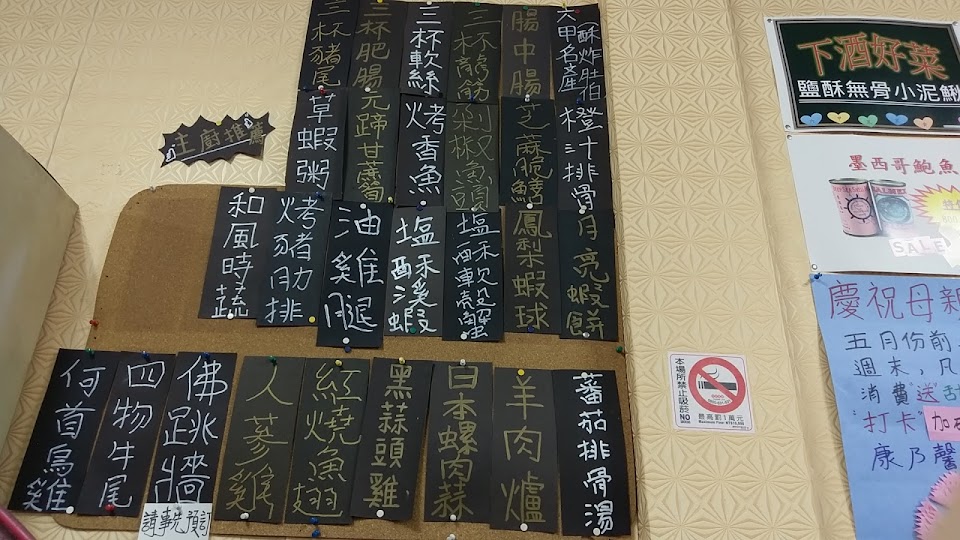 三杯豬尾
三杯肥腸
三杯軟絲
三杯龍筋
腸中腸
六甲名產
主廚推薦
草蝦粥
元蹄甘蔗筍
烤香魚
剁椒魚頭
芝麻脆鱔
橙汁排骨
和風時蔬
烤豬肋排
油雞腿
塩酥溪蝦
塩酥軟殼蟹
鳳梨蝦球
月亮蝦餅
何首烏雞
四物牛尾
佛跳牆
請事先預訂
人蔘雞
紅燒魚翅
黑蒜頭雞
日本螺肉蒜
羊肉爐
蕃茄排骨湯
下酒好菜
鹽酥無骨小泥鰍
墨西哥鮑魚
SALE
本場所禁止吸菸
NO SMOKING
最高罰1萬元
慶祝母親
五月份前
週末，凡
消費送
"打卡"
康乃馨